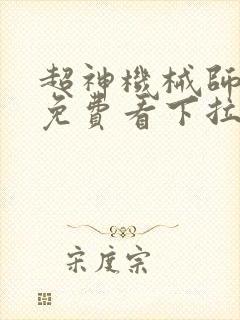 超神機械師
免費看下拉
宋度宗